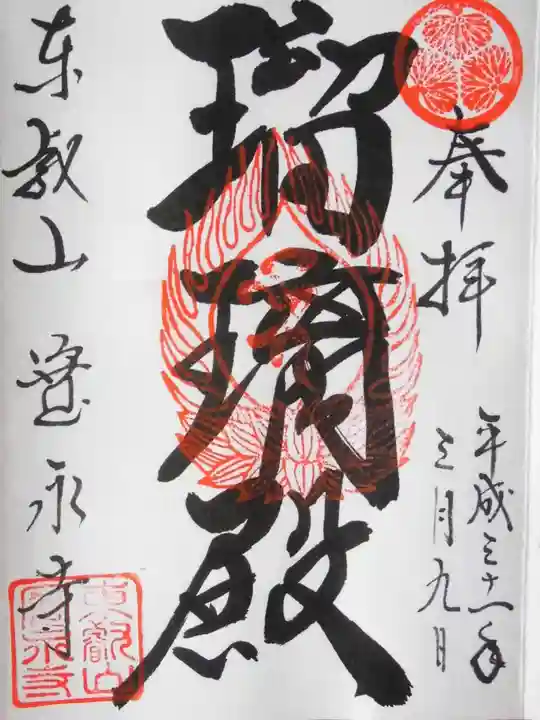 奉拝
平成三十一年
三月九日
瑠璃殿
東叡山寛永寺
東叡山
寛永寺